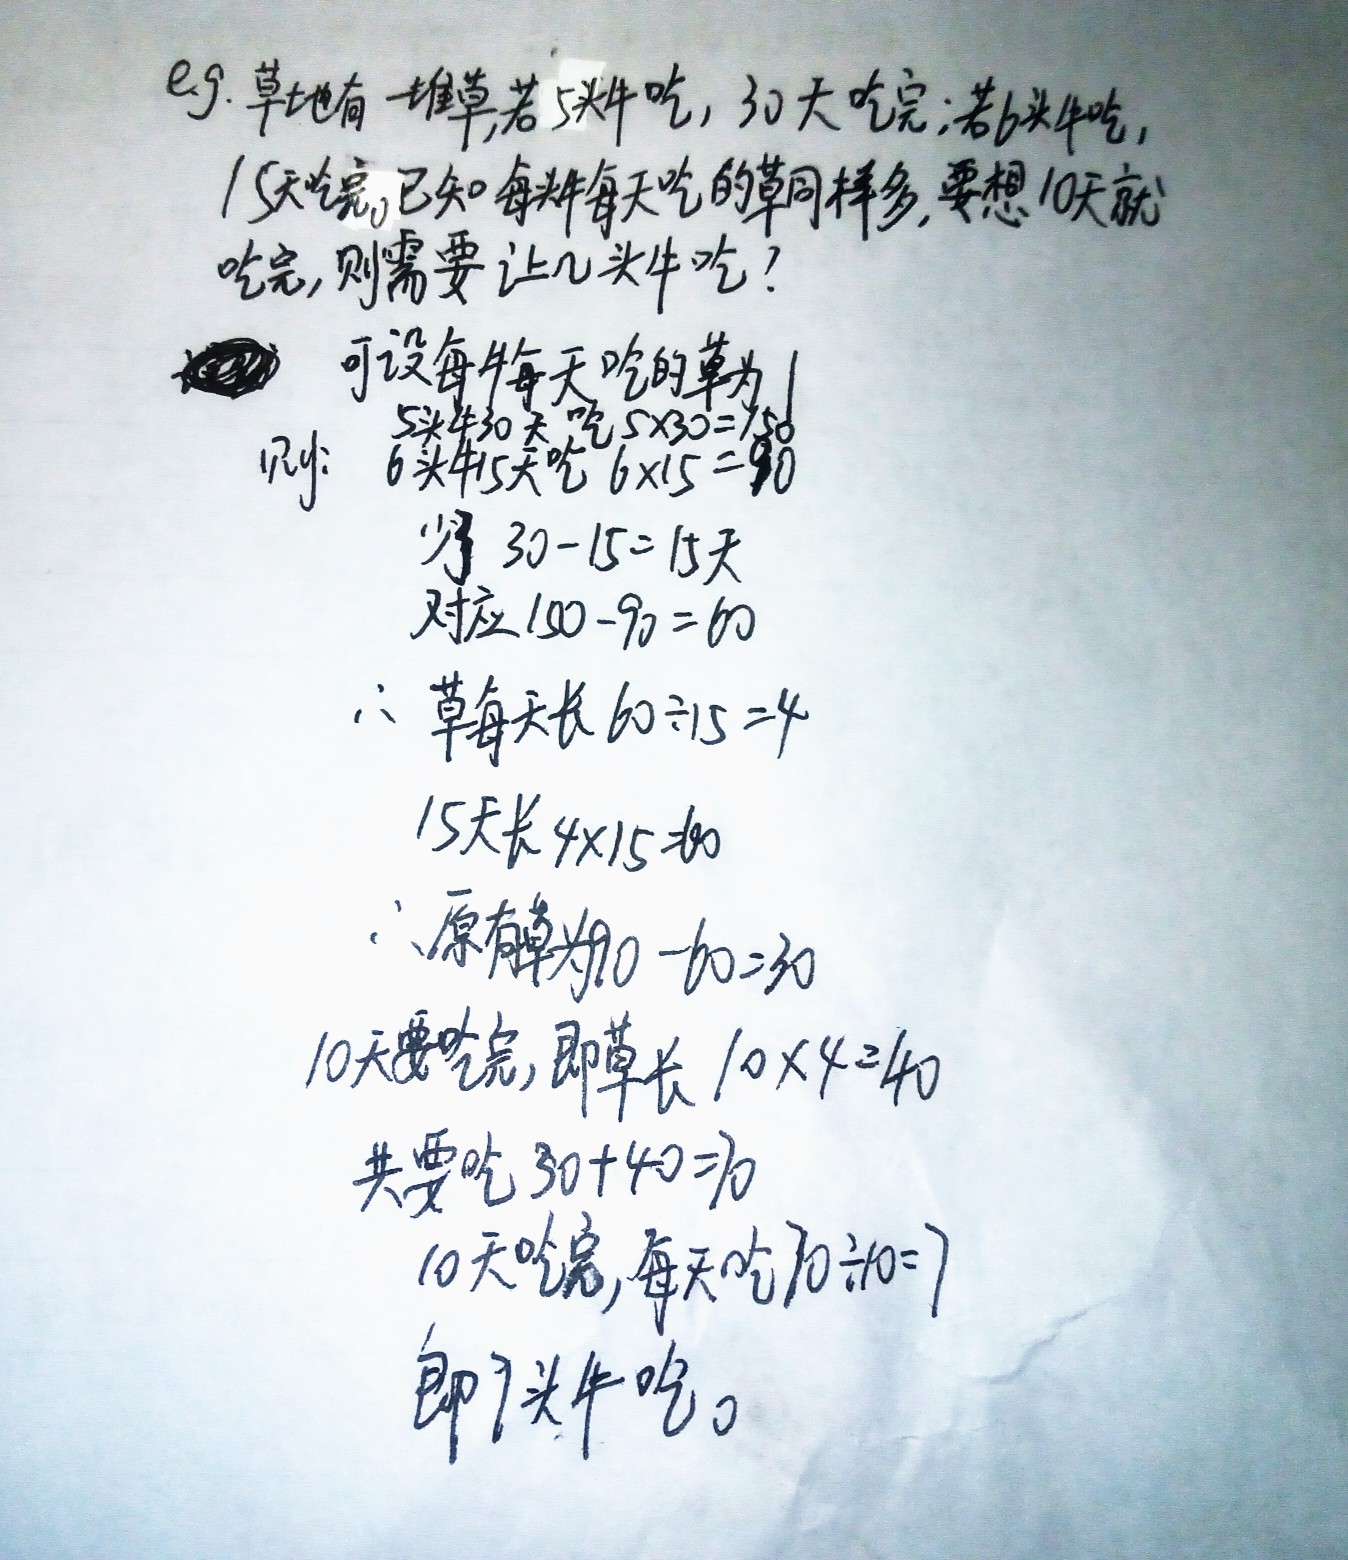 e.g. 草地有一堆草,若5头牛吃, 30天吃完;若6头牛吃,
15天吃完。已知每头牛每天吃的草同样多,要想10天就
吃完,则需要让几头牛吃?
可设每牛每天吃的草为1
5头牛30天吃5×30=150
则: 6头牛15天吃 6×15=90
少了 30-15=15天
对应150-90=60
∴ 草每天长60÷15=4
15天长4×15=60
∴原有草为90-60=30
10天要吃完,即草长10×4=40
共要吃30+40=70
10天吃完,每天吃70÷10=7
即7头牛吃。